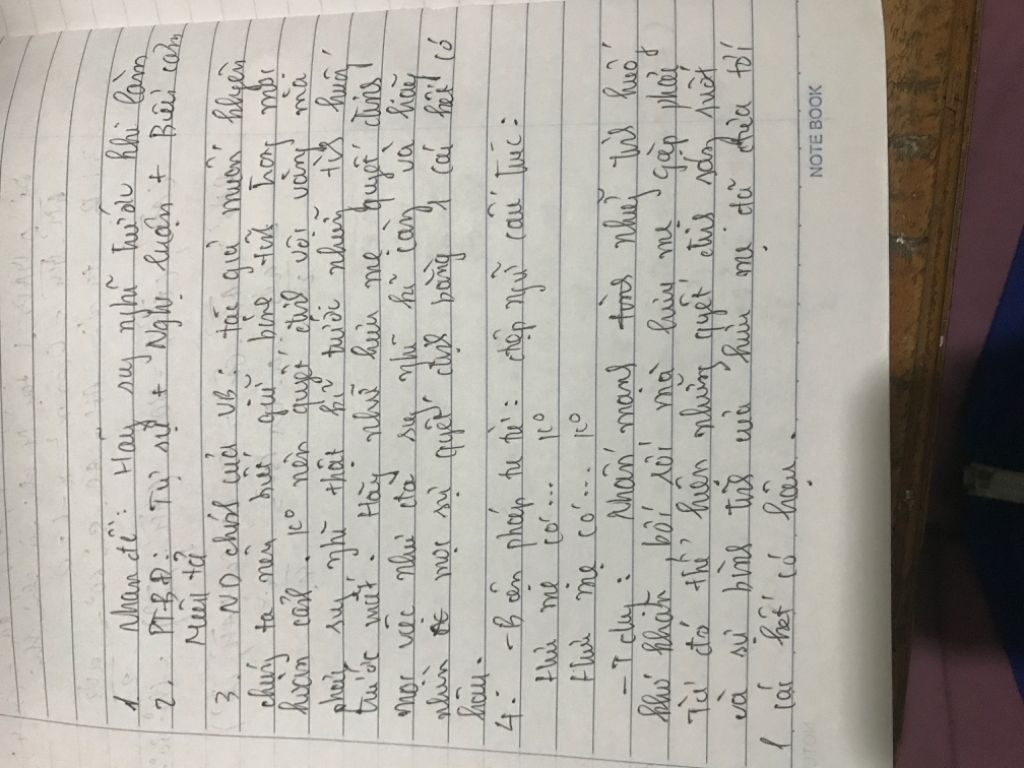 1 Nhan đề: Hãy suy nghĩ trước khi làm
2. PTBĐ: Tự sự + Nghị luận + Biểu cảm
Miêu tả
3 ND chính của VB: tác giả muốn khuyên
ta nên biết giữ bình tĩnh trong mọi
hoàn cảnh. Ko nên quyết định vội vàng mà
phải suy nghĩ thật kĩ trước những tình huống
trước mắt. Hãy như hữu mẹ quyết định
mọi việc như đã suy nghĩ kĩ càng và hãy
nhìn mọi sự quyết định bằng 1 cái kết có
hậu.
4. - Biện pháp tu từ: điệp ngữ cấu trúc:
thìu mẹ có... ko
thìu mẹ có... ko
- T dụng: Nhấn mạnh từng những tình huống
khó khăn bối rối mà hữu mẹ gặp phải
Từ đó thể hiện những quyết định sáng suốt
và sự bình tĩnh của hữu mẹ đã đưa tới
1 cái kết có hậu.
NOTE BOOK